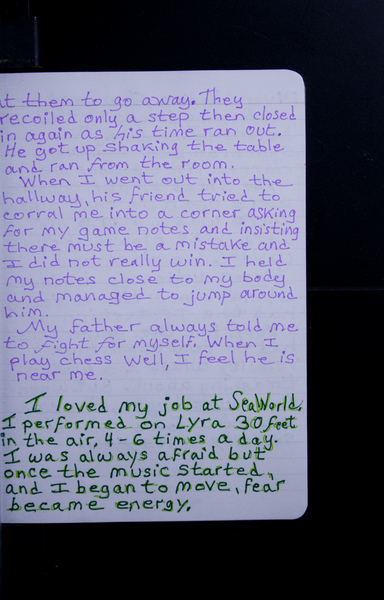 t them to go away. They
recoiled only a step then closed
in again as his time ran out.
He got up shaking the table
and ran from the room.
When I went out into the
hallway, his friend tried to
corral me into a corner asking
for my game notes and insisting
there must be a mistake and
I did not really win. I held
my notes close to my body
and managed to jump around
him.
My father always told me
to fight for myself. When I
play chess well, I feel he is
near me.
I loved my job at SeaWorld.
I performed on Lyra 30 feet
in the air, 4-6 times a day.
I was always afraid but
once the music started,
and I began to move, fear
became energy.